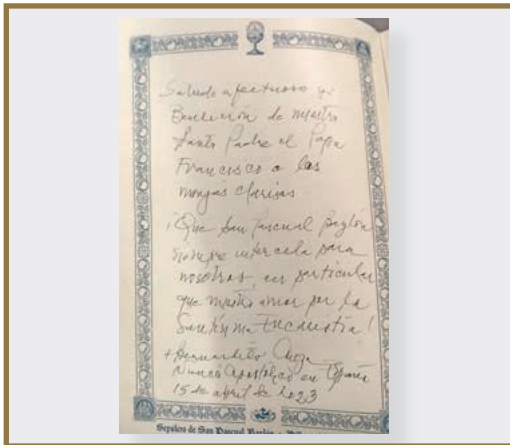 Saludo afectuoso y
Bendición de nuestro
Santo Padre el Papa
Francisco a las
monjas clarisas
¡Que San Pascual Baylón
siempre interceda para
nosotros, en particular
que nuestro amor por la
Santísima Eucaristía!
+ Bernardito Auza
Nuncio Apostólico en España
15 de abril de 2023
Sepulcro de San Pascual Baylón